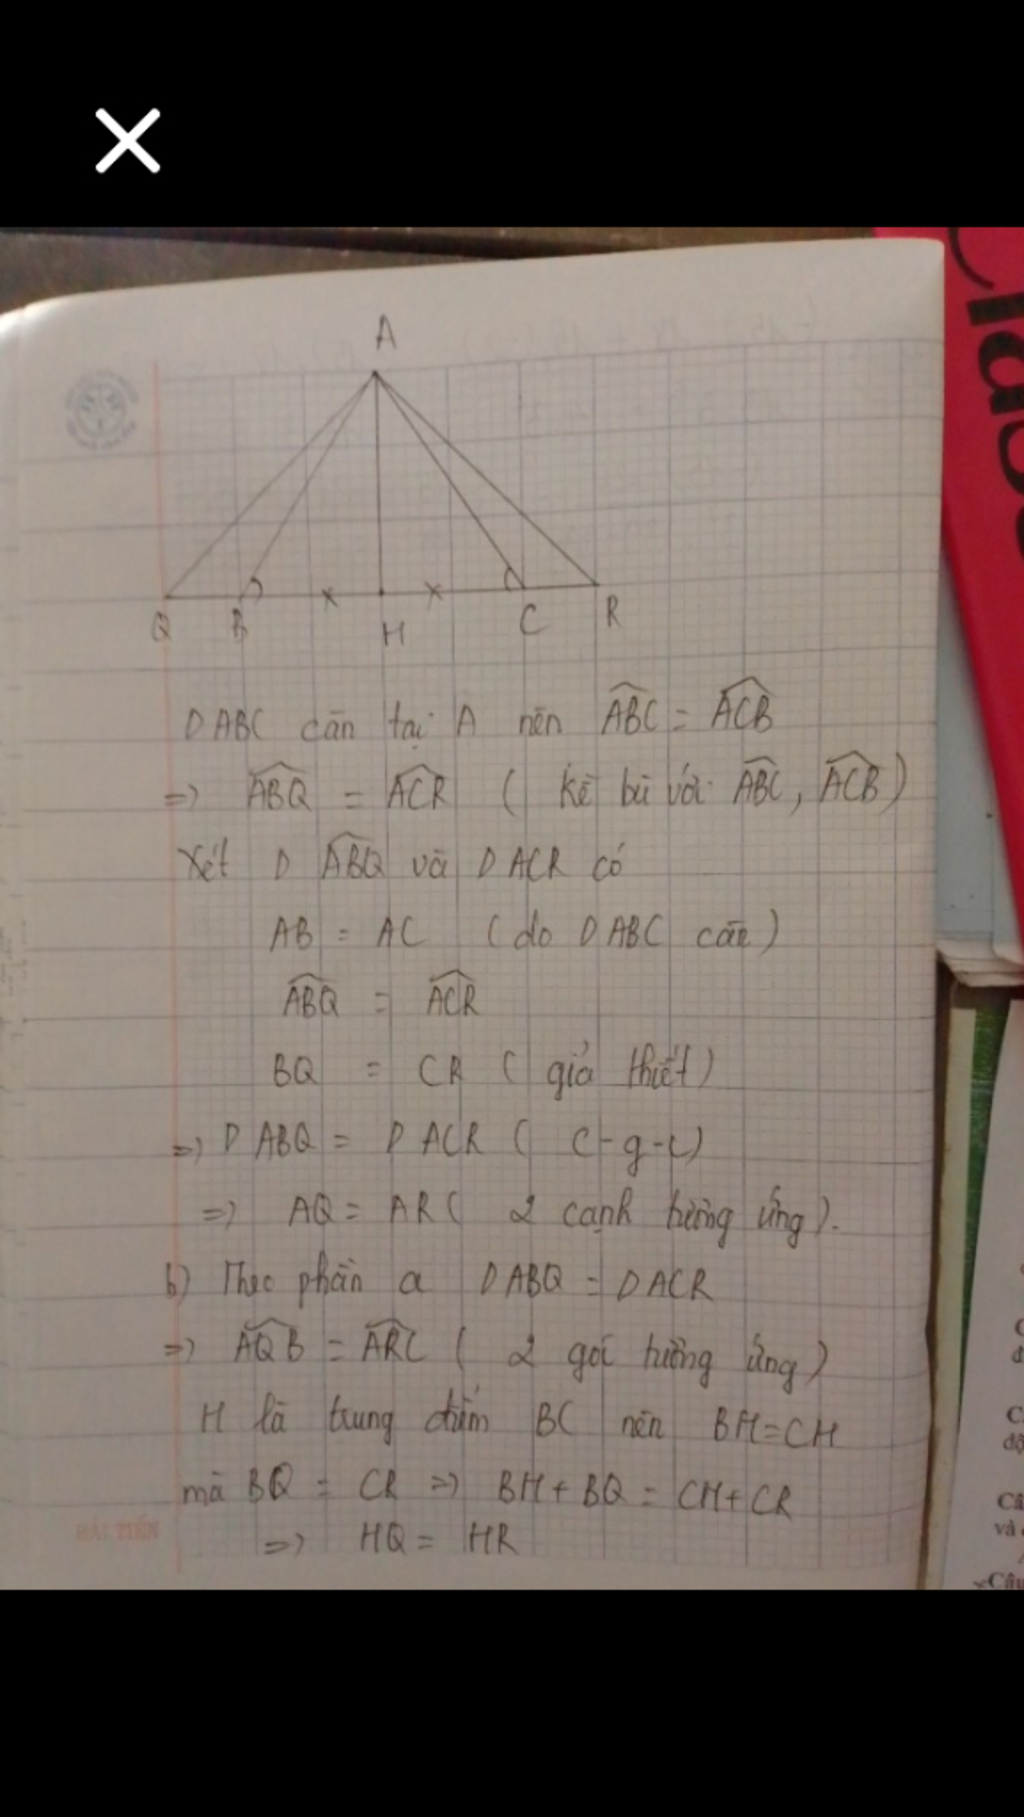 A
Q B H C R
D ABC cân tại A nên ABC = ACB
=> ABQ = ACR ( kề bù với ABC, ACB )
Xét D ABQ và D ACR có
AB = AC ( do D ABC cân )
ABQ = ACR
BQ = CR ( giả thiết )
=> D ABQ = D ACR ( c-g-c )
=> AQ = AR ( 2 cạnh tương ứng ).
b) Theo phần a D ABQ = D ACR
=> AQB = ARC ( 2 góc tương ứng )
H là trung điểm BC nên BH = CH
mà BQ = CR => BH + BQ = CH + CR
HẢI TIẾN
=> HQ = HR
Câ
và
Câu